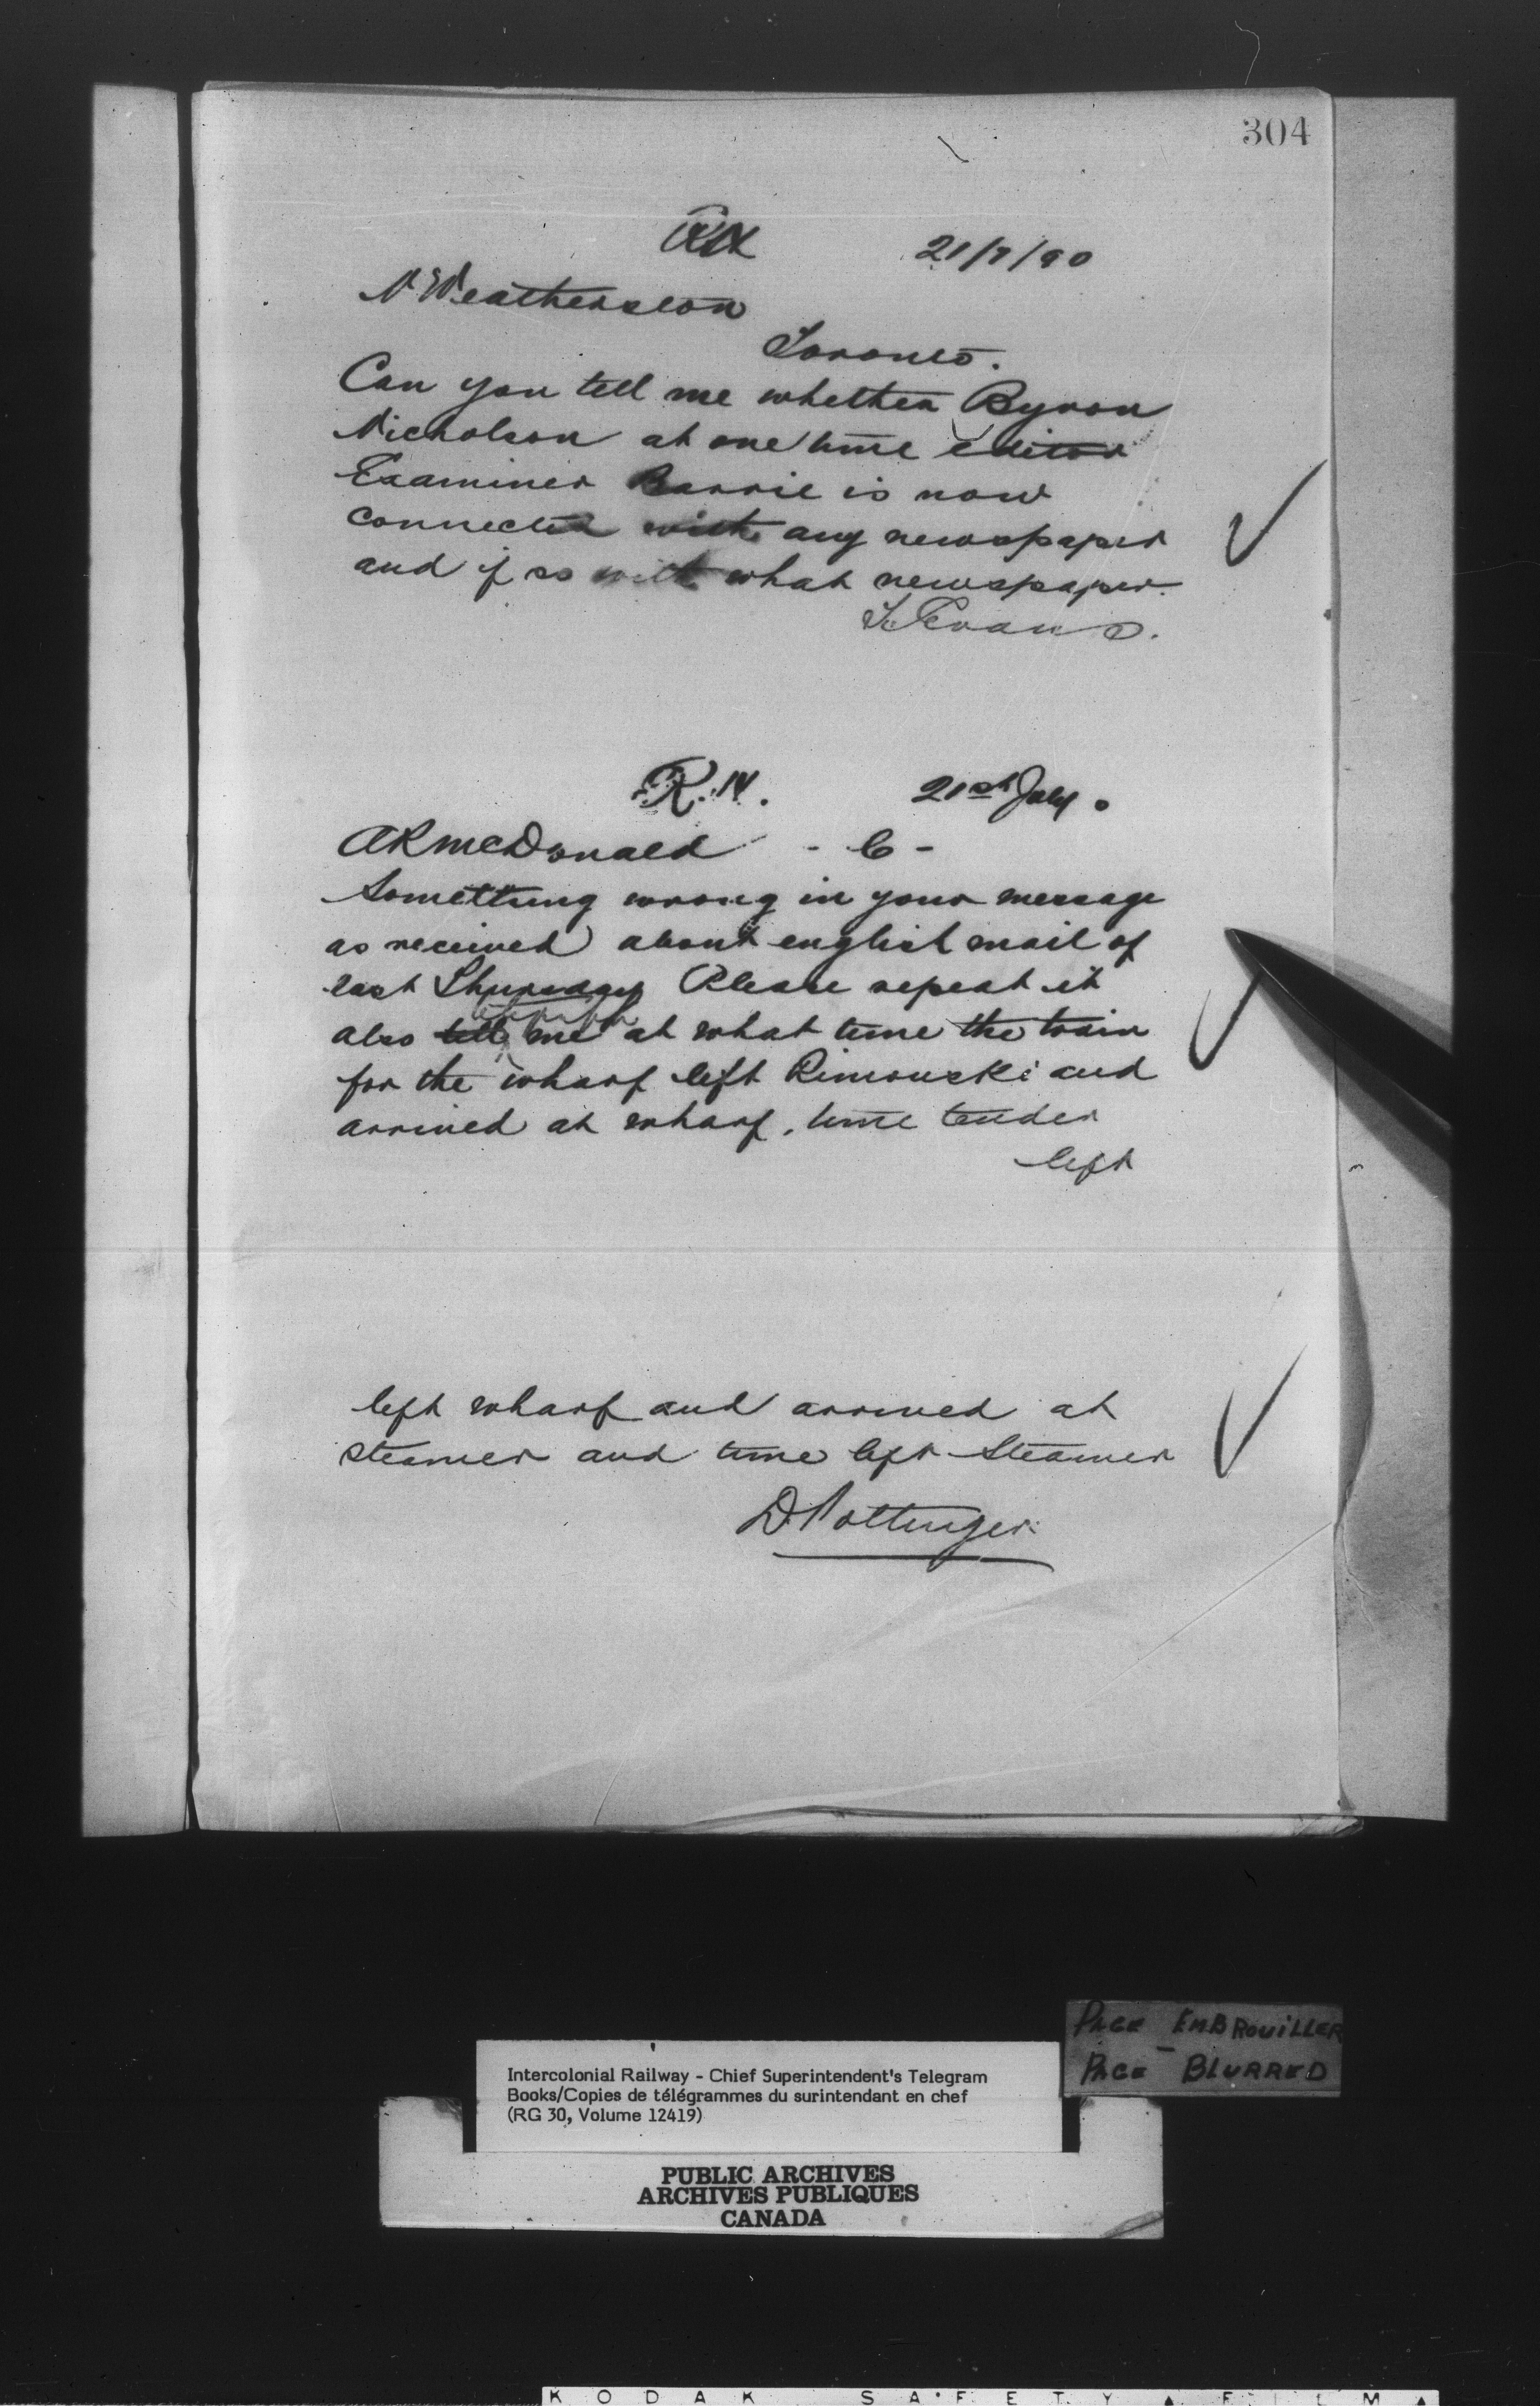 304
21/7/90
N Weatherston
Toronto.
Can you tell me whether Byron
Nicholson at one time editor
Examiner Barrie is now
connected with any newspaper
and if so with what newspaper.
Evans.
R.N. 21st July.
AR McDonald - C -
Something wrong in your message
as received about english mail of
last Thursday Please repeat it
also tell me at what time the train
for the wharf left Rimouski and
arrived at wharf, time tender
left
left wharf and arrived at
steamer and time left steamer
D Pottinger
PAGE EMBROUILLER
PAGE - BLURRED
Intercolonial Railway - Chief Superintendent's Telegram
Books/Copies de télégrammes du surintendant en chef
(RG 30, Volume 12419)
PUBLIC ARCHIVES
ARCHIVES PUBLIQUES
CANADA
KODAK SAFETY FILM